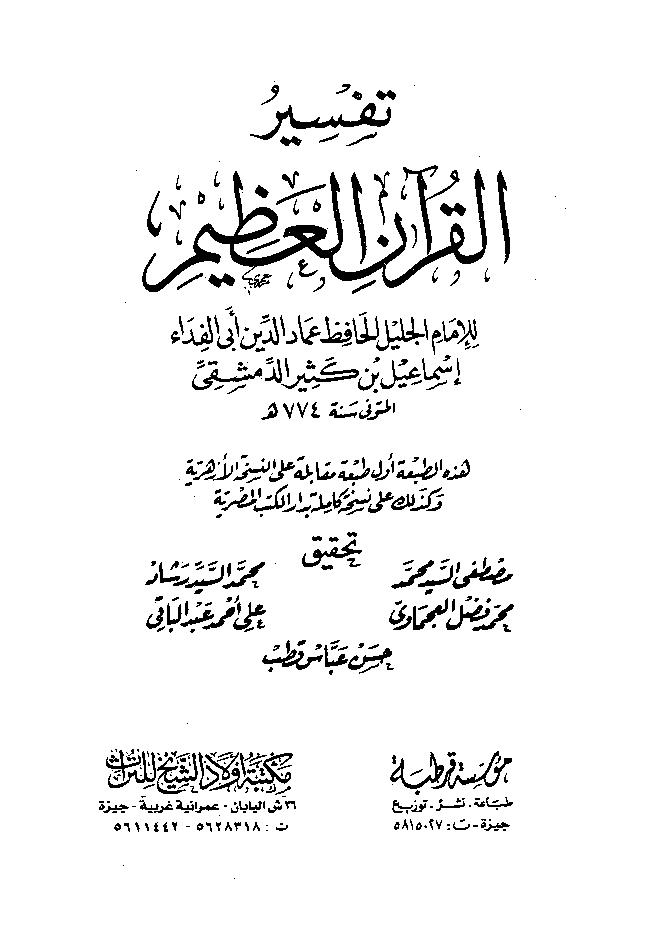 تفسير
القرآن العظيم
للإمام الجليل الحافظ عماد الدين أبي الفداء
إسماعيل بن كثير الدمشقي
المتوفى سنة ٧٧٤ هـ
هذه الطبعة أول طبعة مقابلة على النسخة الأزهرية
وكذلك على نسخة كاملة بدار الكتب المصرية
تحقيق
مصطفى السيد محمد
محمد السيد رشاد
محمد فضل العجماوي
علي أحمد عبد الباقي
حسن عباس قطب
مؤسسة قرطبة
طباعة . نشر . توزيع
جيزة - ت : ٥٨١٥٠٢٧
مكتبة أولاد الشيخ للتراث
٣٦ ش اليابان - عمرانية غربية - جيزة
ت : ٥٦٢٨٣١٨ - ٥٦١١٤٤٢